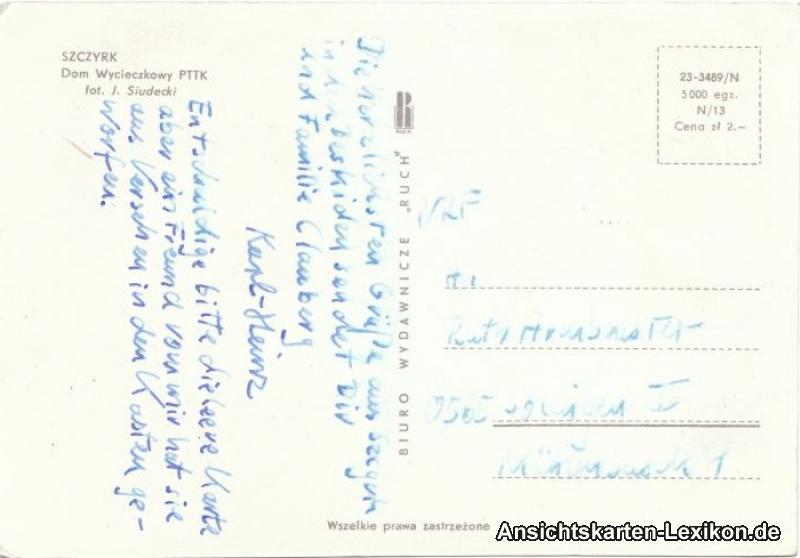 SZCZYRK
Dom Wycieczkowy PTTK
fot. J. Siudecki
Die herzlichsten Grüße aus Szczyrk
in den Beskiden sendet Dir
und Familie Clauberg
Karl-Heinz
Entschuldige bitte die leere Karte
aber ein Freund von mir hat sie
aus Versehen in den Kasten ge-
worfen.
RUCH
BIURO WYDAWNICZE „RUCH”
23-3489/N
5000 egz.
N/13
Cena zł 2.—
Ruth
Wszelkie prawa zastrzeżone
Ansichtskarten-Lexikon.de